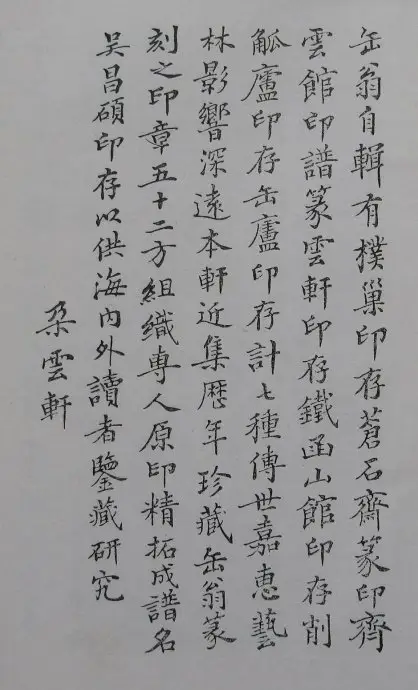 缶翁自輯有樸巢印存蒼石齋篆印齊
雲館印譜篆雲軒印存鐵函山館印存削
觚廬印存缶廬印存計七種傳世嘉惠藝
林影響深遠本軒近集歷年珍藏缶翁篆
刻之印章五十二方組織專人原印精拓成譜名
吴昌碩印存以供海内外讀者鑒藏研究
朵雲軒